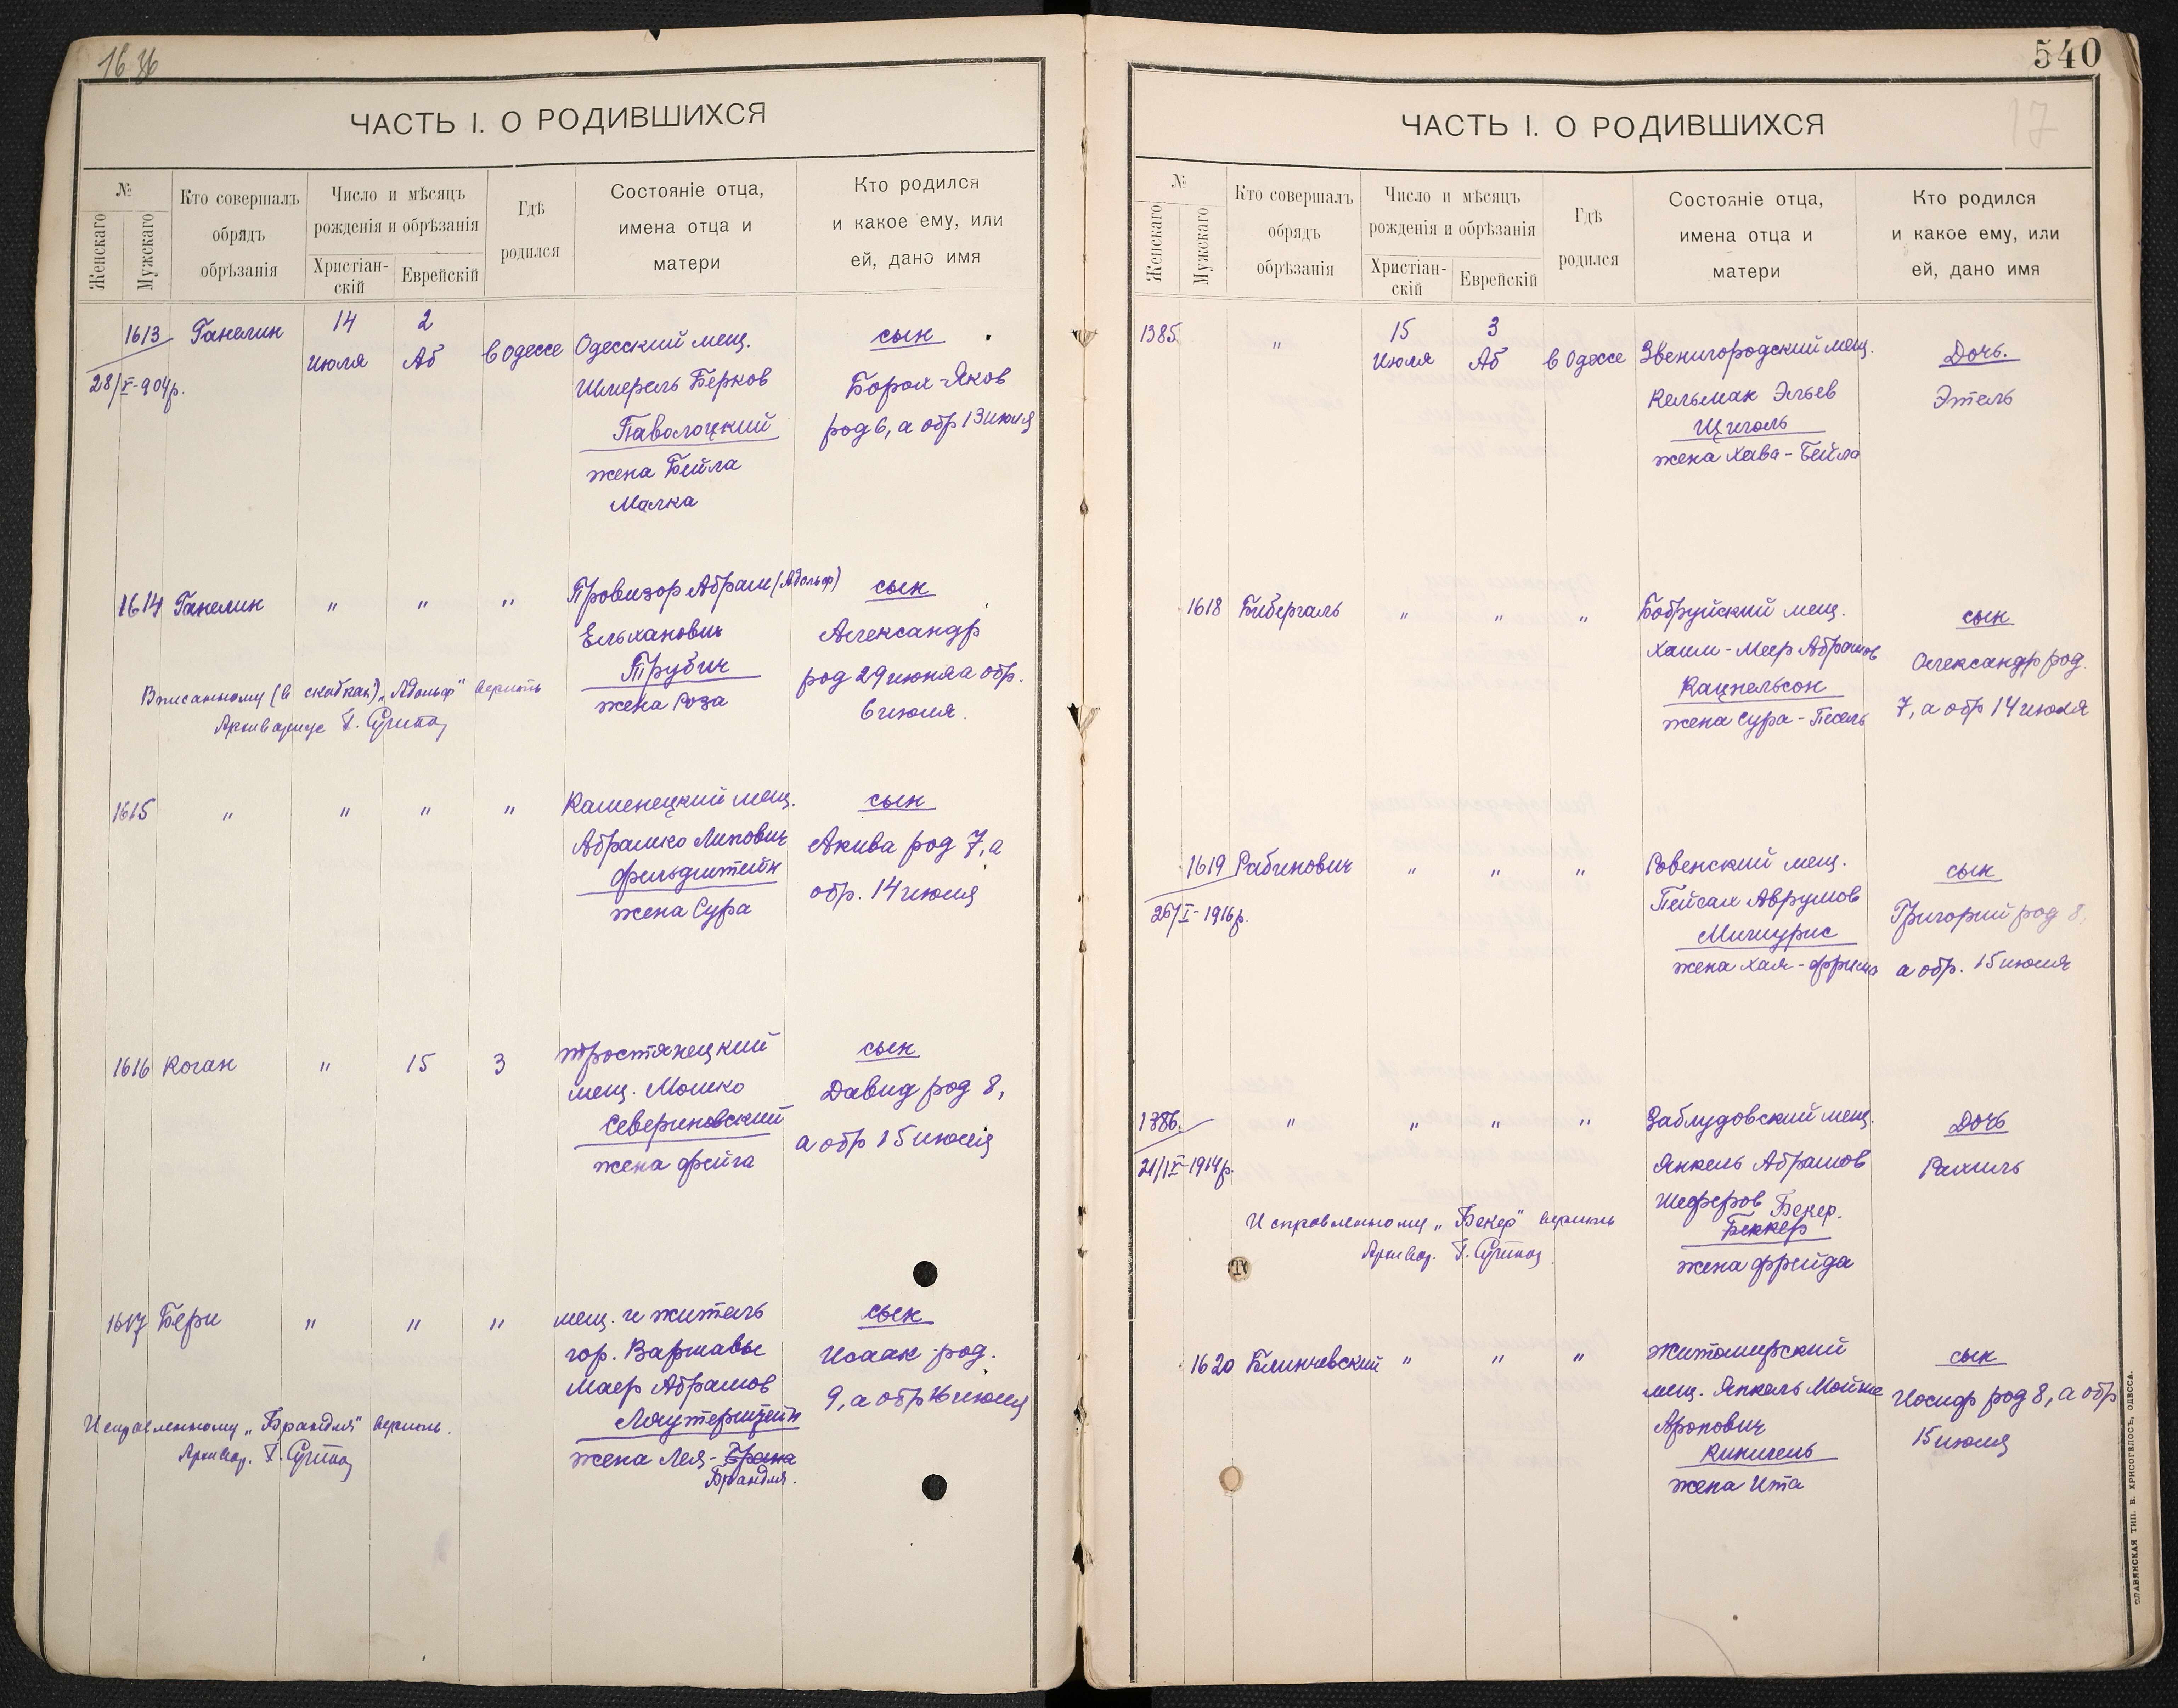 ЧАСТЬ I. О РОДИВШИХСЯ
№
Женскаго
Мужскаго
Кто совершалъ
обрядъ
обрѣзанія
Число и мѣсяцъ
рожденія и обрѣзанія
Христіан-
скій
Еврейскій
Гдѣ
родился
Состояніе отца,
имена отца и
матери
Кто родился
и какое ему, или
ей, дано имя
1613 Ганелин 14 2
июля Аб в Одессе Одесский мещ. сын
28/V-904р. Шмерель Берков Борол-Яков
Паволоцкий род 6, а обр 13 июля
жена Бейла
Малка
1614 Ганелин " " " Провизор Абрам (Адольф) сын
Ельханович Александр
Трубич род 29 июня а обр.
Вписанному (в скобках) "Адольф" верить жена Роза 6 июля.
1615 " " " " Каменецкий мещ. сын
Абрамко Липович Акива род 7, а
Фильдштейн обр. 14 июля
жена Сура
1616 Коган " 15 3 тростянецкий сын
мещ. Мошко Давид род 8,
Севериновский а обр 15 июля
жена Фейга
1617 Бери " " " мещ. и житель сын
гор. Варшавы Исаак род.
Маер Абрамов 9, а обр 16 июля
Исправленному "Брандля" верить. Лаутерштейн
Архивар. жена Лея-Брана
Брандля.
540
17
ЧАСТЬ I. О РОДИВШИХСЯ
№
Женскаго
Мужскаго
Кто совершалъ
обрядъ
обрѣзанія
Число и мѣсяцъ
рожденія и обрѣзанія
Христіан-
скій
Еврейскій
Гдѣ
родился
Состояніе отца,
имена отца и
матери
Кто родился
и какое ему, или
ей, дано имя
1385. " 15 3
Июля Аб в Одессе Звенигородский мещ. Дочь.
Кельман Эльев Этель
Щиголь
жена Хава-Бейла
1618 Бибергаль " " " Бобруйский мещ. сын
Хаим-Меер Абрамов Александр род.
Кацнельсон 7, а обр 14 июля
жена Сура-Песель
1619 Рабинович " " " Ровенский мещ. сын
26/I-1916р. Пейсах Аврумов Григорий род 8,
жена Хая- а обр. 15 июля
1386. " " " " Заблудовский мещ. Дочь
21/IV-1914р. Янкель Абрамов Рахиль
Шеферов Бекер.
Исправленному "Бекер" верить Беккер
Архивар. жена Фрейда
1620 Блинчевский " " " житомирский сын
мещ. Янкель Мойше Иосиф род 8, а обр
Аронович 15 июля
жена Ита
СЛАВЯНСКАЯ ТИП. Н. ХРИСОГЕЛОСЪ, ОДЕССА.